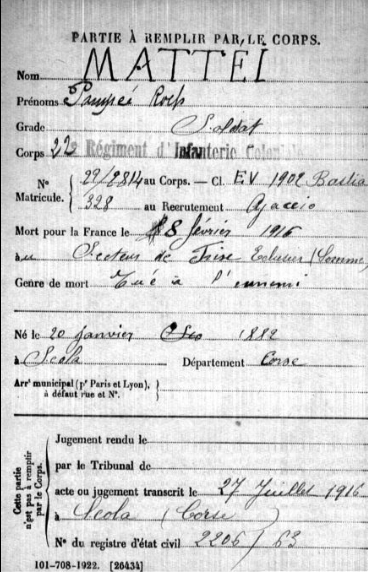 PARTIE À REMPLIR PAR LE CORPS.
Nom MATTEI
Prénoms
Grade Soldat
Corps 22e Régiment d'Infanterie Coloniale
Nº 29/2814 au Corps. — Cl. EV 1902 Bastia
Matricule. 328 au Recrutement Ajaccio
Mort pour la France le 8 février 1916
à au Secteur de Frise Eclusier (Somme)
Genre de mort Tué à l'ennemi
Né le 20 janvier 1882
à Scola Département Corse
Arrt municipal (pr Paris et Lyon),
à défaut rue et Nº.
Cette partie
n'est pas à remplir
par le Corps.
Jugement rendu le
par le Tribunal de
acte ou jugement transcrit le 27 Juillet 1916
à Scola (Corse)
Nº du registre d'état civil 2206/63
101-708-1922. [26434]